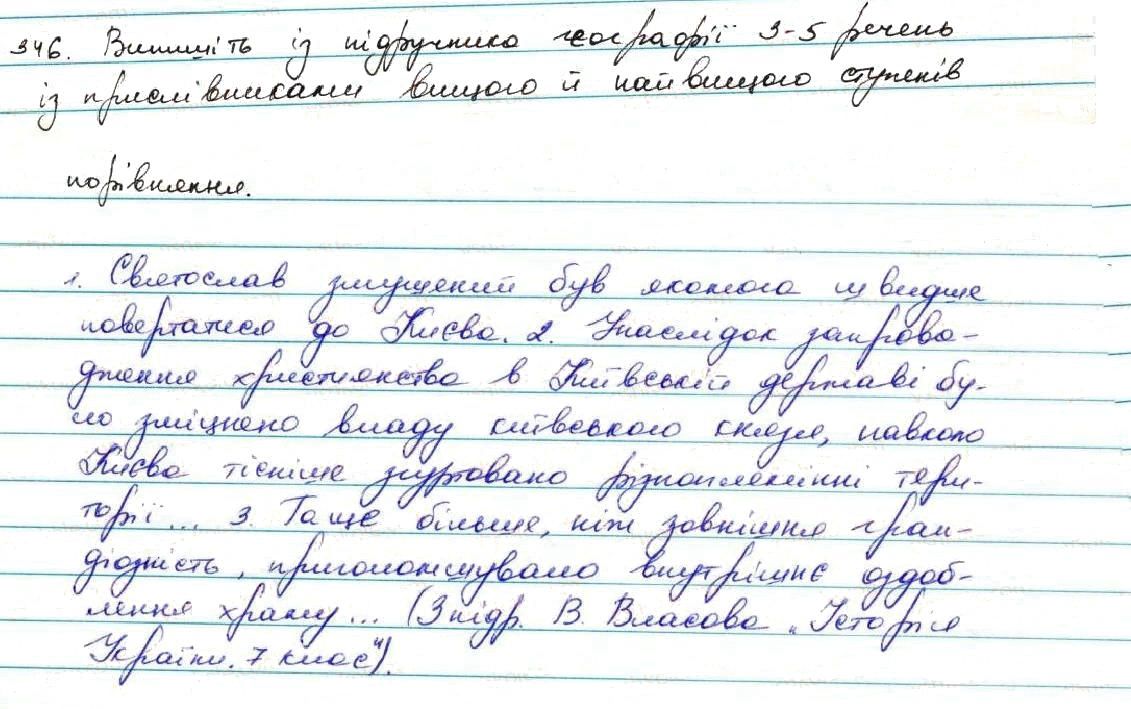 346. Випишіть із підручника географії 3-5 речень
із прислівниками вищого й найвищого ступенів
порівняння.
1. Святослав змушений був якомога швидше
повертатися до Києва. 2. Унаслідок запрова-
дження християнства в Київській державі бу-
ло зміцнено владу київського князя, навколо
Києва тісніше згуртовано різноплемінні тери-
торії... 3. Та ще більше, ніж зовнішня гран-
діозність, приголомшувало внутрішнє оздоб-
лення храму... (З підр. В. Власова „Історія
України. 7 клас").